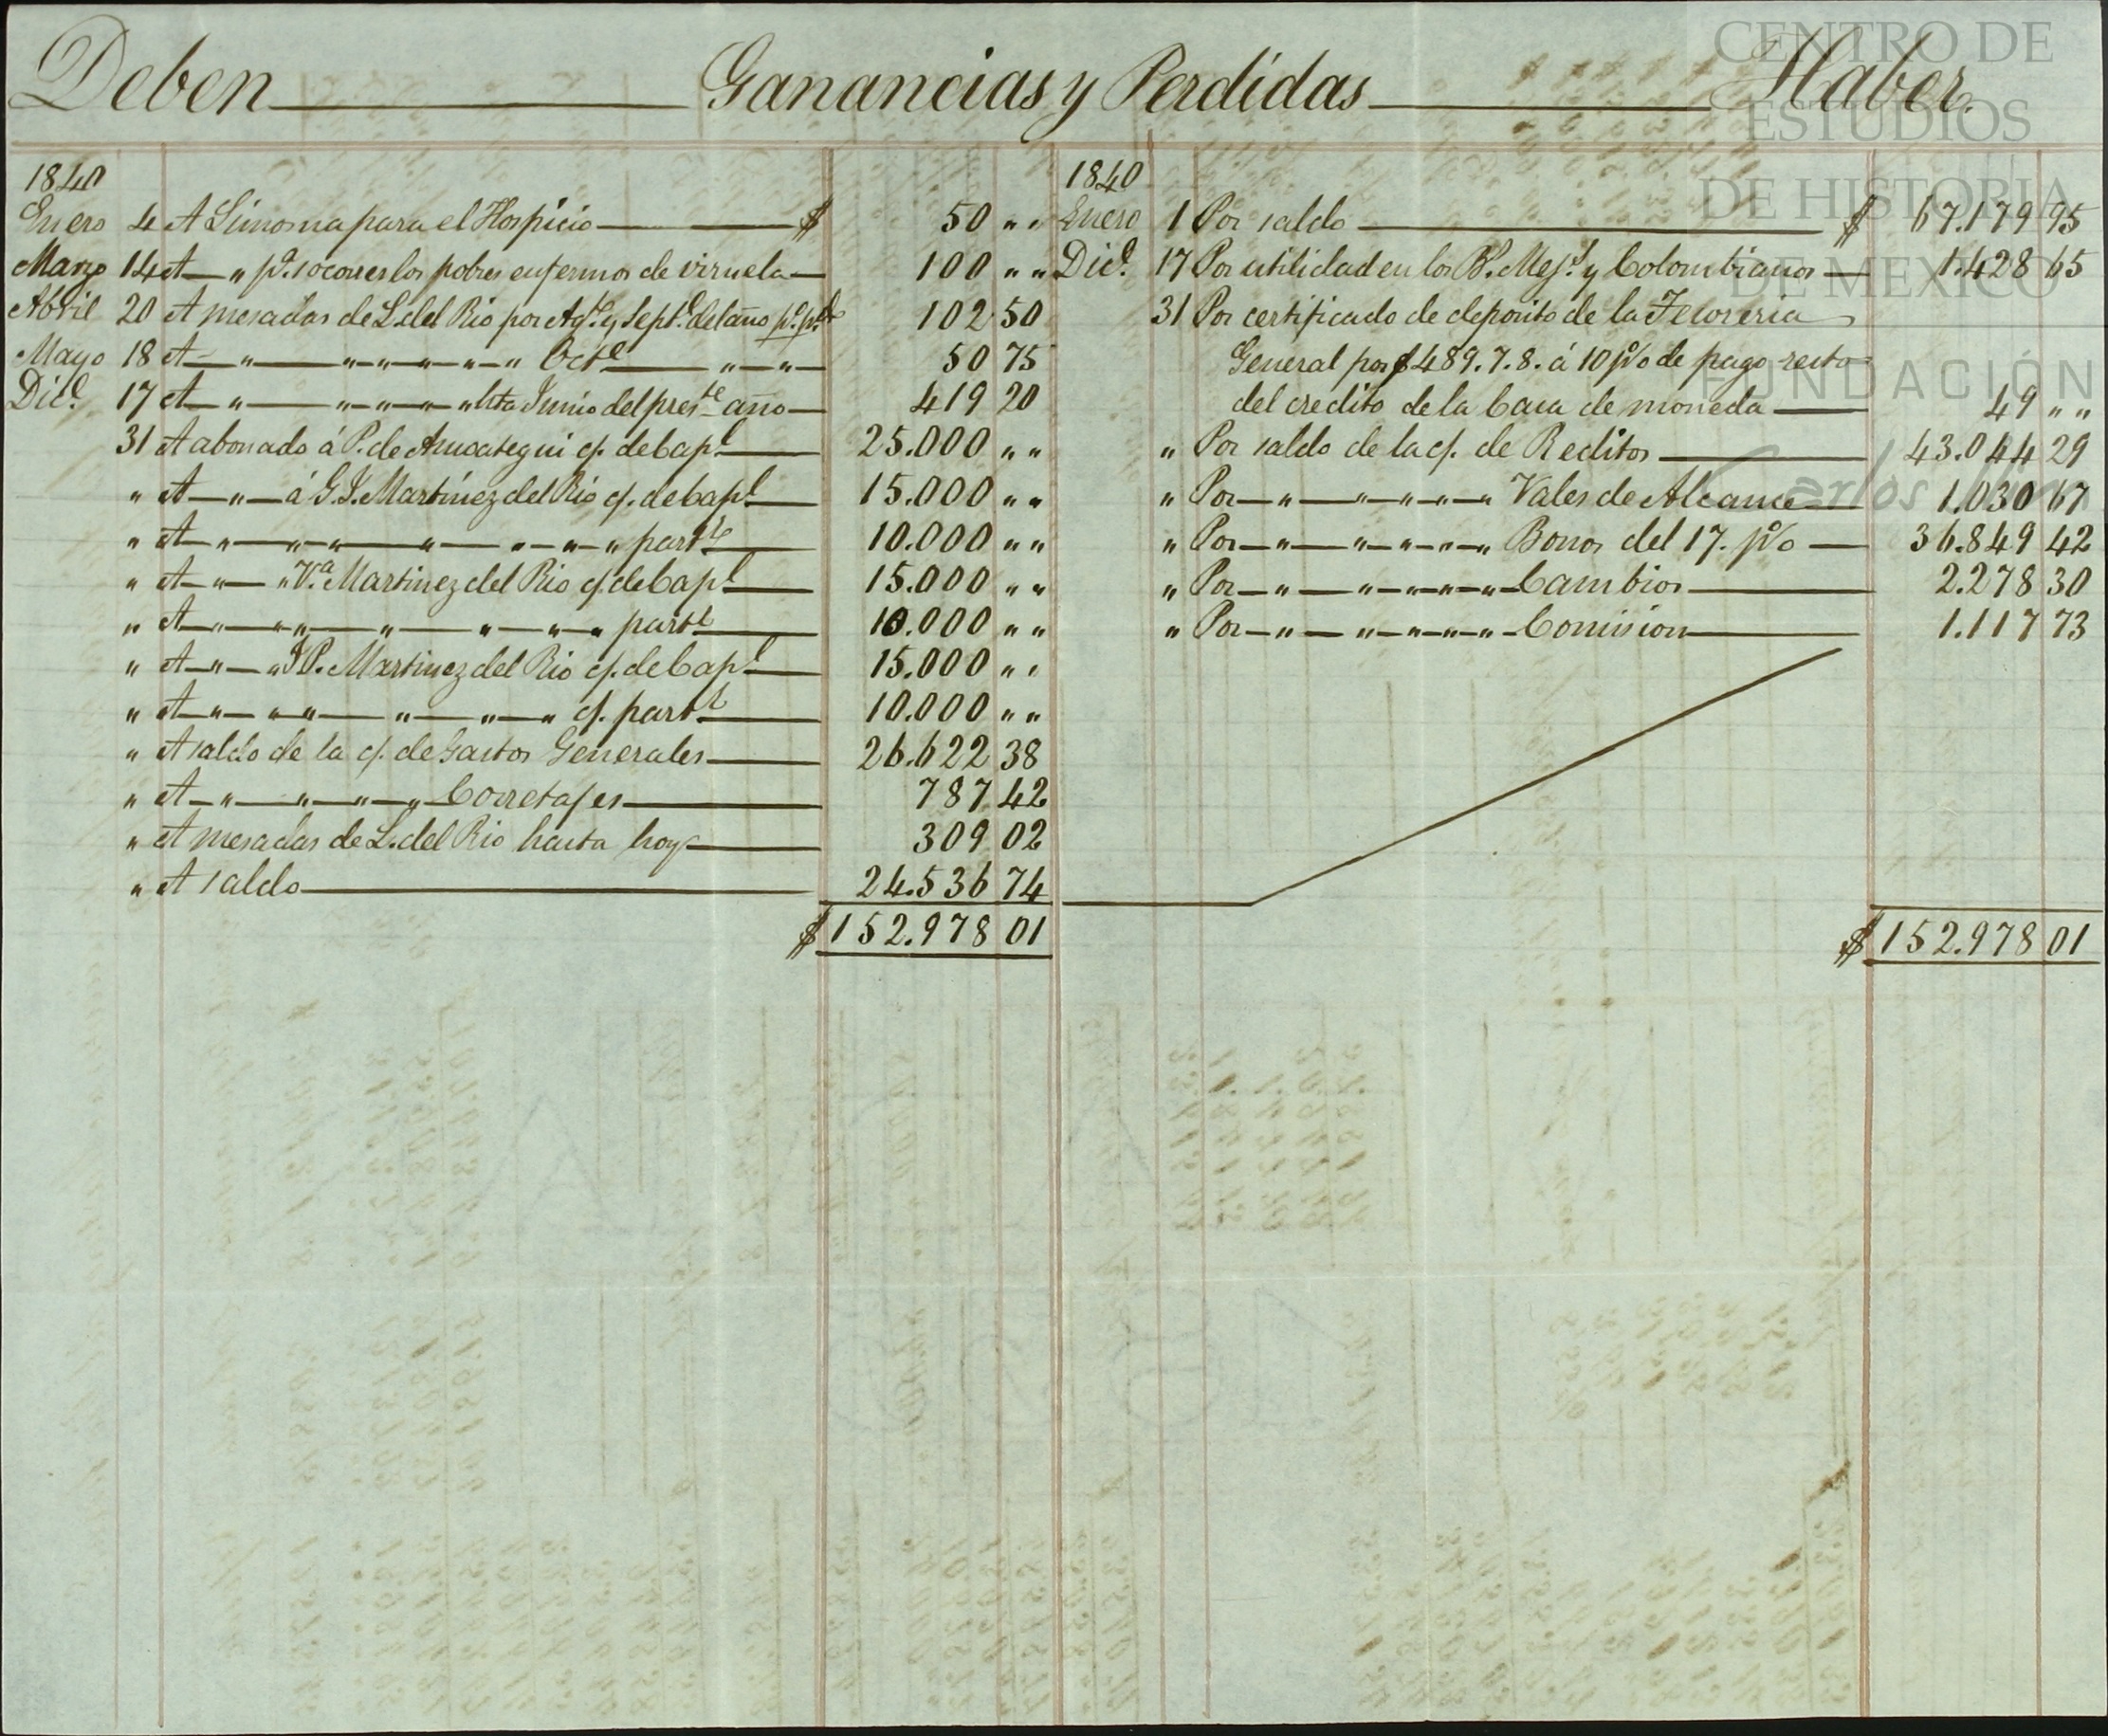 Deben Ganancias y Perdidas Haber.
1840
Enero 4 A Limosna para el Hospicio $ 50 " "
Marzo 14 A " pa. socorrer los pobres enfermos de viruela 100 " "
Abril 20 A mesadas de L. del Rio por Agto. y Septe. del año po. pdo. 102 50
Mayo 18 A " " " " " " Octe. " " 50 75
Dice. 17 A " " " " " hta Junio del preste. año 419 20
31 A abonado á P. de Ansoategui c/. de Capl. 25.000 " "
" A " á G. J. Martínez del Rio c/. de Capl. 15.000 " "
" A " " " " " " " " partl. 10.000 " "
" A " " Va. Martinez del Rio c/. de Capl. 15.000 " "
" A " " " " " " " partl. 10.000 " "
" A " " J P. Martinez del Rio c/. de Capl. 15.000 " "
" A " " " " " c/. partl. 10.000 " "
" A saldo de la c/. de Gastos Generales 26.622 38
" A " " " " Corretajes 787 42
" A mesadas de L. del Rio hasta hoy 309 02
" A saldo 24.536 74
$ 152.978 01
1840
Enero 1 Por saldo $ 67.179 95
Dice. 17 Por utilidad en los Bs. Mejs. y Colombianos 1.428 65
31 Por certificado de deposito de la Tesoreria
General por $489.7.8. á 10 p% de pago resto
del credito de la Casa de moneda 49 " "
" Por saldo de la c/. de Reditos 43.044 29
" Por " " " " " Vales de Alcance 1.030 67
" Por " " " " " Bonos del 17. p% 36.849 42
" Por " " " " " Cambios 2.278 30
" Por " " " " " Comission 1.117 73
$ 152.978 01
CENTRO DE
ESTUDIOS
DE HISTORIA
DE MEXICO
FUNDACIÓN
Carlos Slim